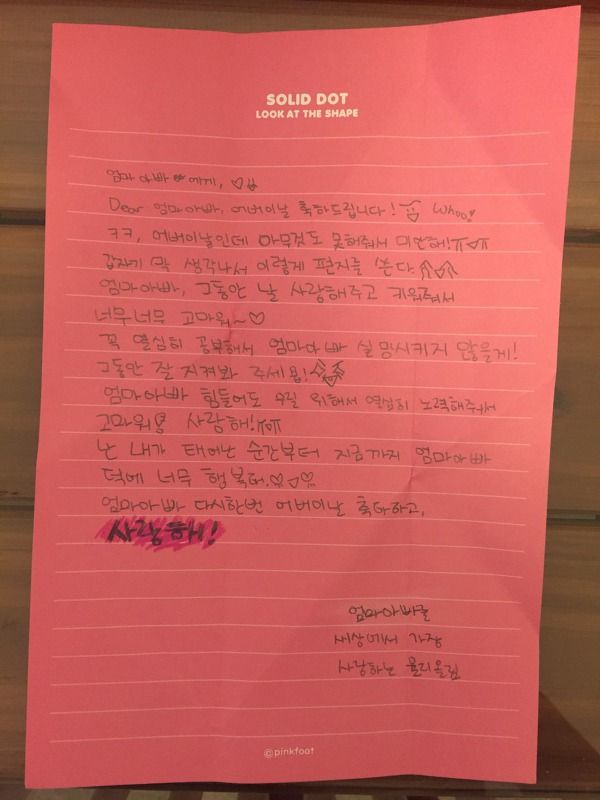 SOLID DOT
LOOK AT THE SHAPE
엄마아빠에게, ♡
Dear 엄마아빠, 어버이날 축하드립니다! Whoo!
ㅋㅋ, 어버이날인데 아무것도 못해줘서 미안해!ㅠㅠ
갑자기 막 생각나서 이렇게 편지를 쓴다.
엄마아빠, 그동안 날 사랑해주고 키워줘서
너무너무 고마워~♡
꼭 열심히 공부해서 엄마아빠 실망시키지 않을게!
그동안 잘 지켜봐 주세용!
엄마아빠 힘들어도 우릴 위해서 열심히 노력해줘서
고마워 사랑해!ㅠㅠ
난 내가 태어난 순간부터 지금까지 엄마아빠
덕에 너무 행복해.♡♡
엄마아빠 다시한번 어버이날 축하하고,
사랑해!
엄마아빠를
세상에서 가장
사랑하는 올림
@pinkfoot